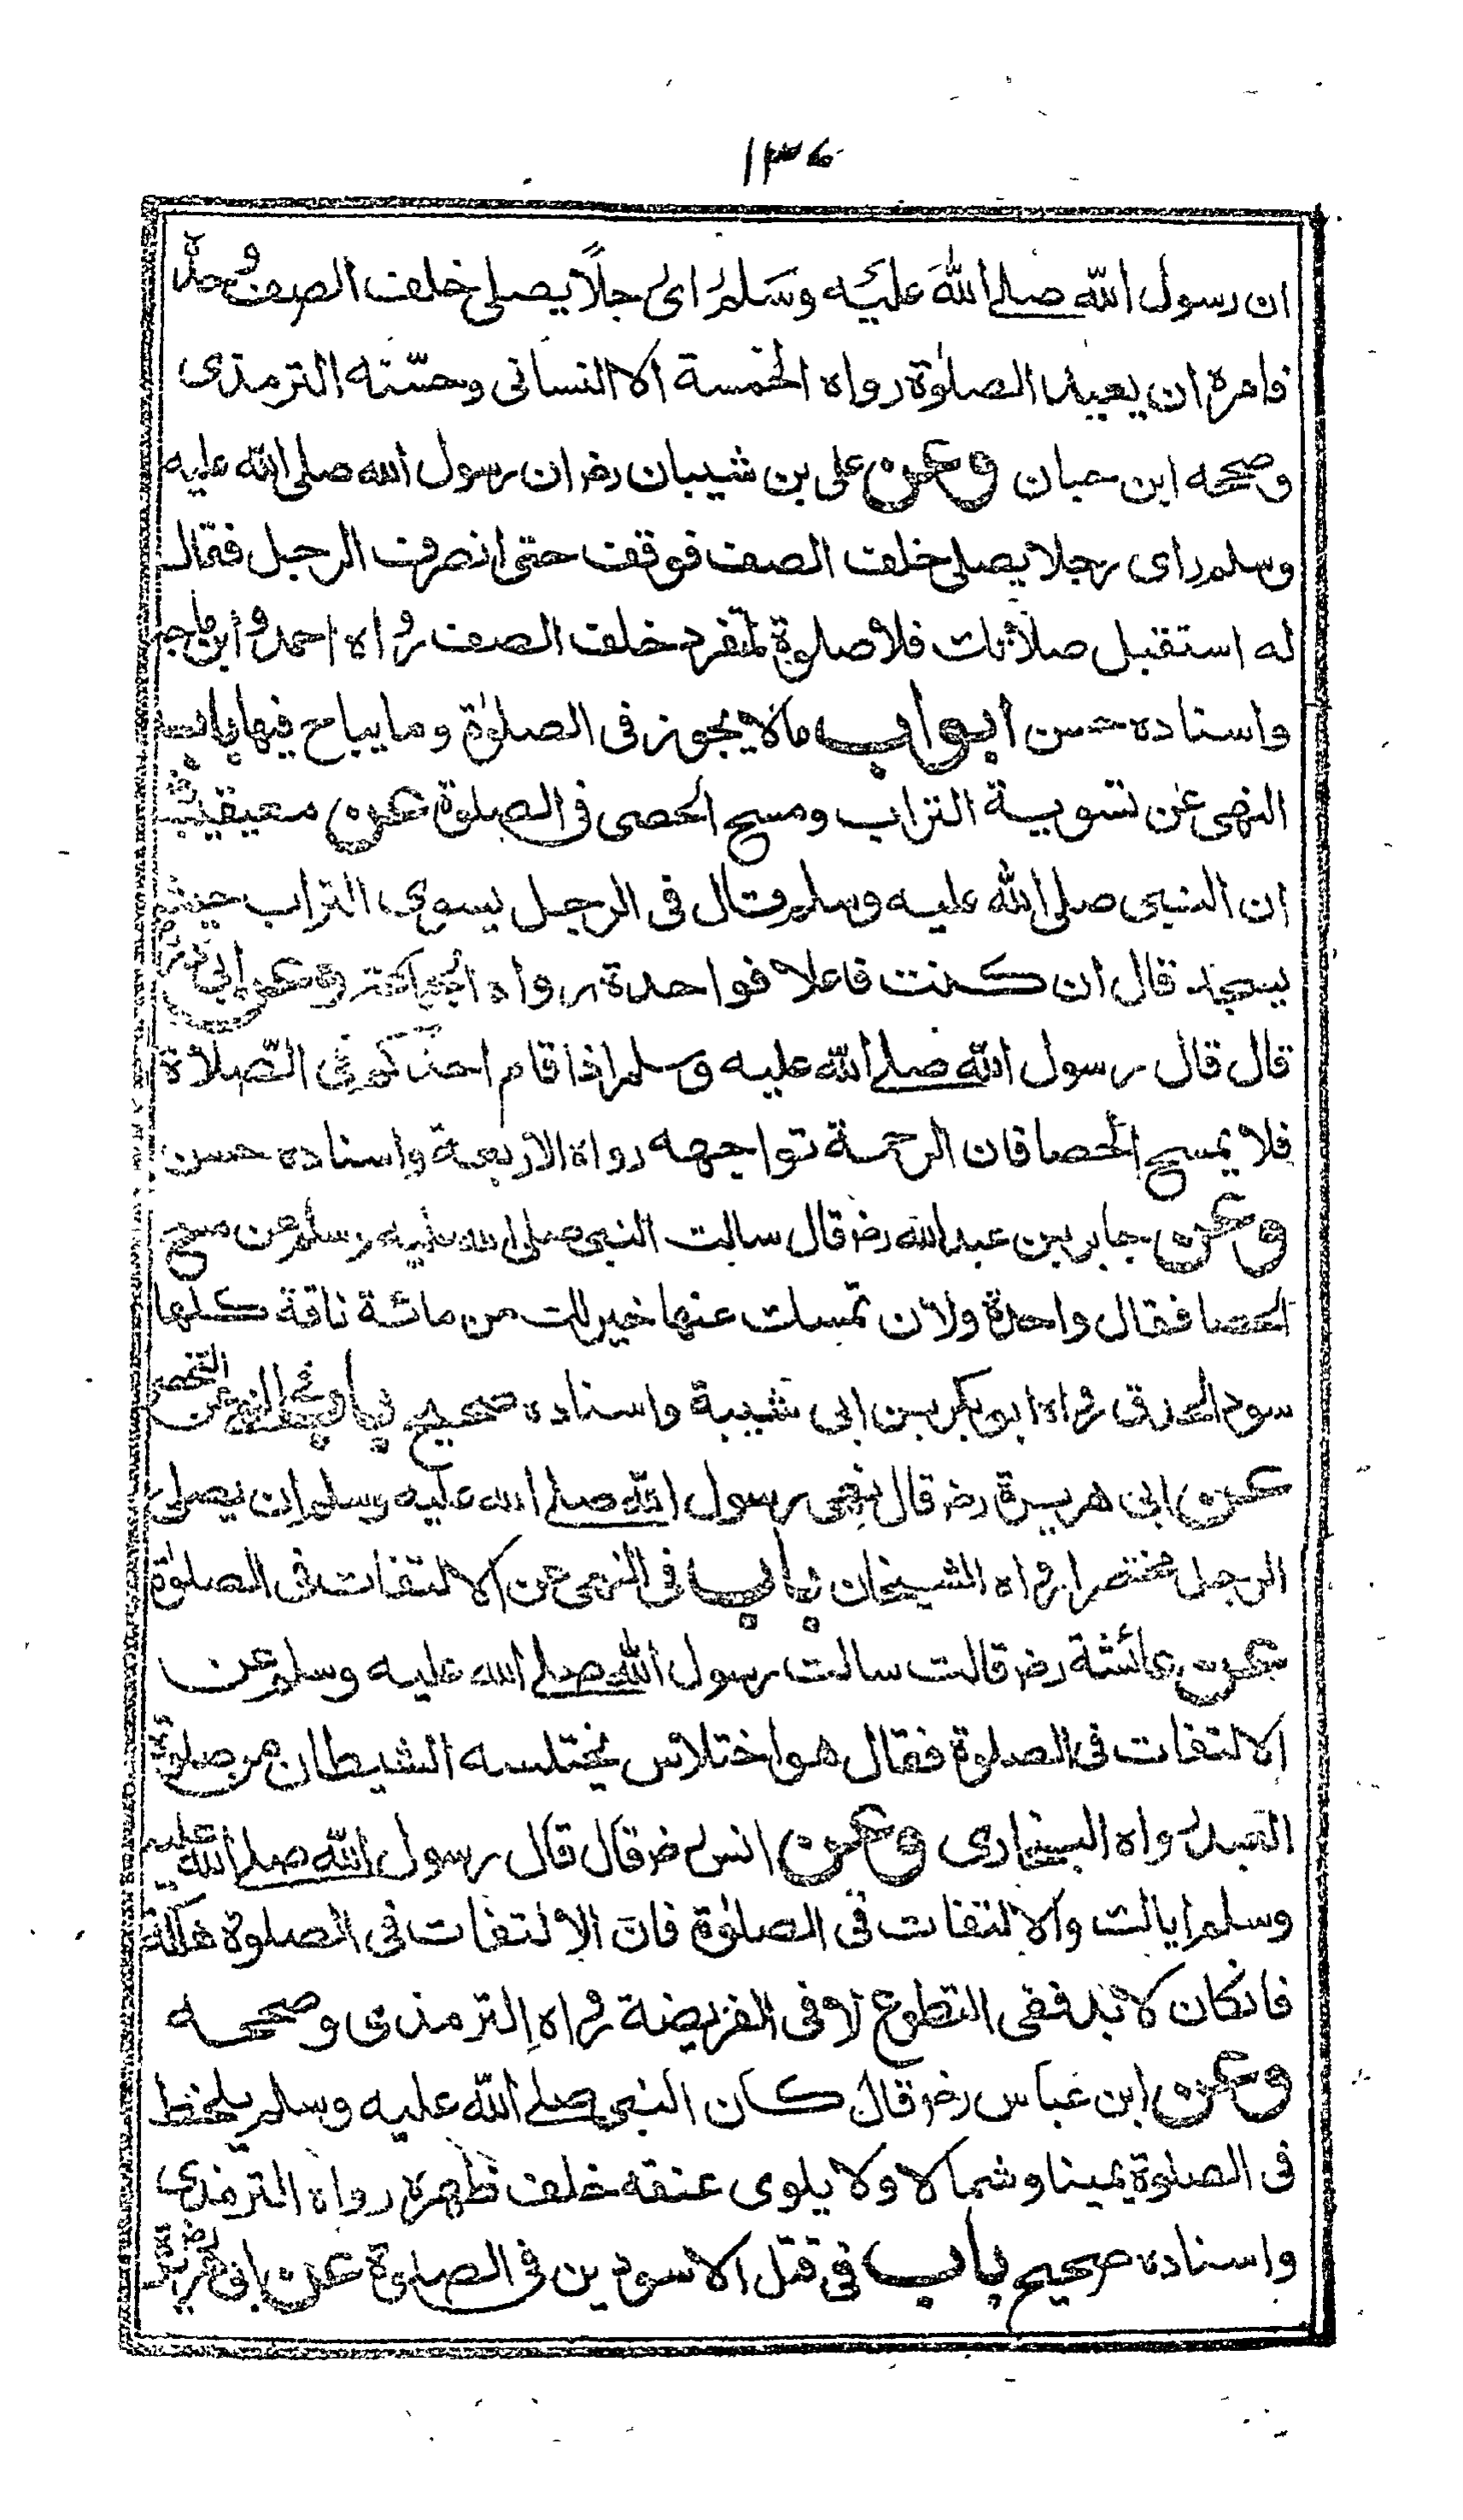 ١٣٤
ان رسول الله صلى الله عليه وسلم راى رجلا يصلى خلف الصف وحده
فامره ان يعيد الصلوة رواه الخمسة الا النسائى وحسنه الترمذى
وصححه ابن حبان وعن على بن شيبان رض ان رسول الله صلى الله عليه
وسلم راى رجلا يصلى خلف الصف فوقف حتى انصرف الرجل فقال
له استقبل صلاتك فلا صلوة لمنفرد خلف الصف رواه احمد وابن ماجه
واسناده حسن ابواب مالا يجوز فى الصلوة وما يباح فيها باب
النهى عن تسوية التراب ومسح الحصى فى الصلوة عن معيقيب رض
ان النبى صلى الله عليه وسلم قال فى الرجل يسوى التراب حيث
يسجد قال ان كنت فاعلا فواحدة رواه الجماعة وعن ابى ذر رض
قال قال رسول الله صلى الله عليه وسلم اذا قام احدكم فى الصلاة
فلا يمسح الحصا فان الرحمة تواجهه رواه الاربعة واسناده حسن
وعن جابر بن عبد الله رض قال سالت النبى صلى الله عليه وسلم عن مسح
الحصا فقال واحدة ولان تمسك عنها خير لك من مائة ناقة كلها
سود الحدق رواه ابو بكر بن ابى شيبة واسناده صحيح باب فى النهى عن التخصر
عن ابى هريرة رض قال نهى رسول الله صلى الله عليه وسلم ان يصلى
الرجل مختصرا رواه الشيخان باب فى النهى عن الالتفات فى الصلوة
عن عائشة رض قالت سالت رسول الله صلى الله عليه وسلم عن
الالتفات فى الصلوة فقال هو اختلاس يختلسه الشيطان من صلوة
العبد رواه البخارى وعن انس رض قال قال رسول الله صلى الله عليه
وسلم اياك والالتفات فى الصلوة فان الالتفات فى الصلوة هلكة
فان كان لا بد ففى التطوع لا فى الفريضة رواه الترمذى وصححه
وعن ابن عباس رض قال كان النبى صلى الله عليه وسلم يلحظ
فى الصلوة يمينا وشمالا ولا يلوى عنقه خلف ظهره رواه الترمذى
واسناده صحيح باب فى قتل الاسودين فى الصلوة عن ابى هريرة رض